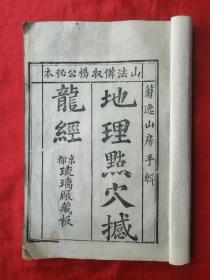 山法備收楊公秘本
菊逸山房手輯
地理點穴撼
龍經
京都琉璃厰藏板